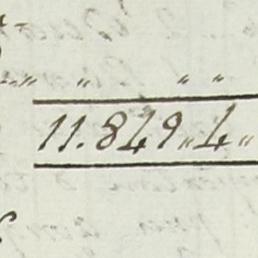 " " " "
11.849 " 4 "